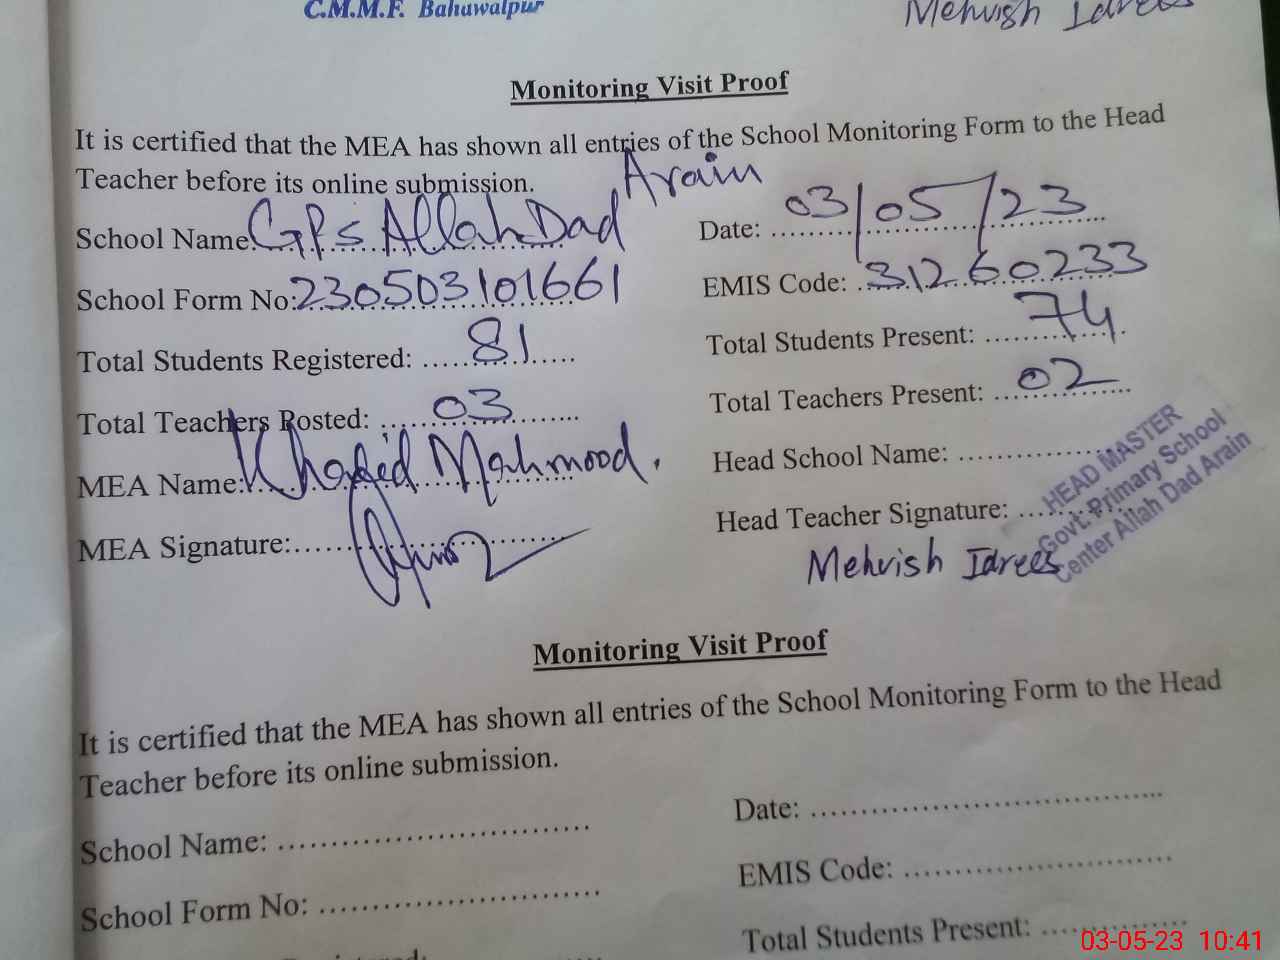 C.M.M.F. Bahawalpur
Mehvish Idrees
Monitoring Visit Proof
It is certified that the MEA has shown all entries of the School Monitoring Form to the Head
Teacher before its online submission.
School Name: GPS Allah Dad Arain
Date: 03/05/23
School Form No: 230503101661
EMIS Code: 31260233
Total Students Registered: 81
Total Students Present: 74
Total Teachers Posted: 03
Total Teachers Present: 02
MEA Name: Khalid Mahmood.
Head School Name:
MEA Signature:
Head Teacher Signature:
Mehvish Idrees
HEAD MASTER
Govt: Primary School
Center Allah Dad Arain
Monitoring Visit Proof
It is certified that the MEA has shown all entries of the School Monitoring Form to the Head
Teacher before its online submission.
School Name:
Date:
School Form No:
EMIS Code:
Total Students Present:
03-05-23 10:41